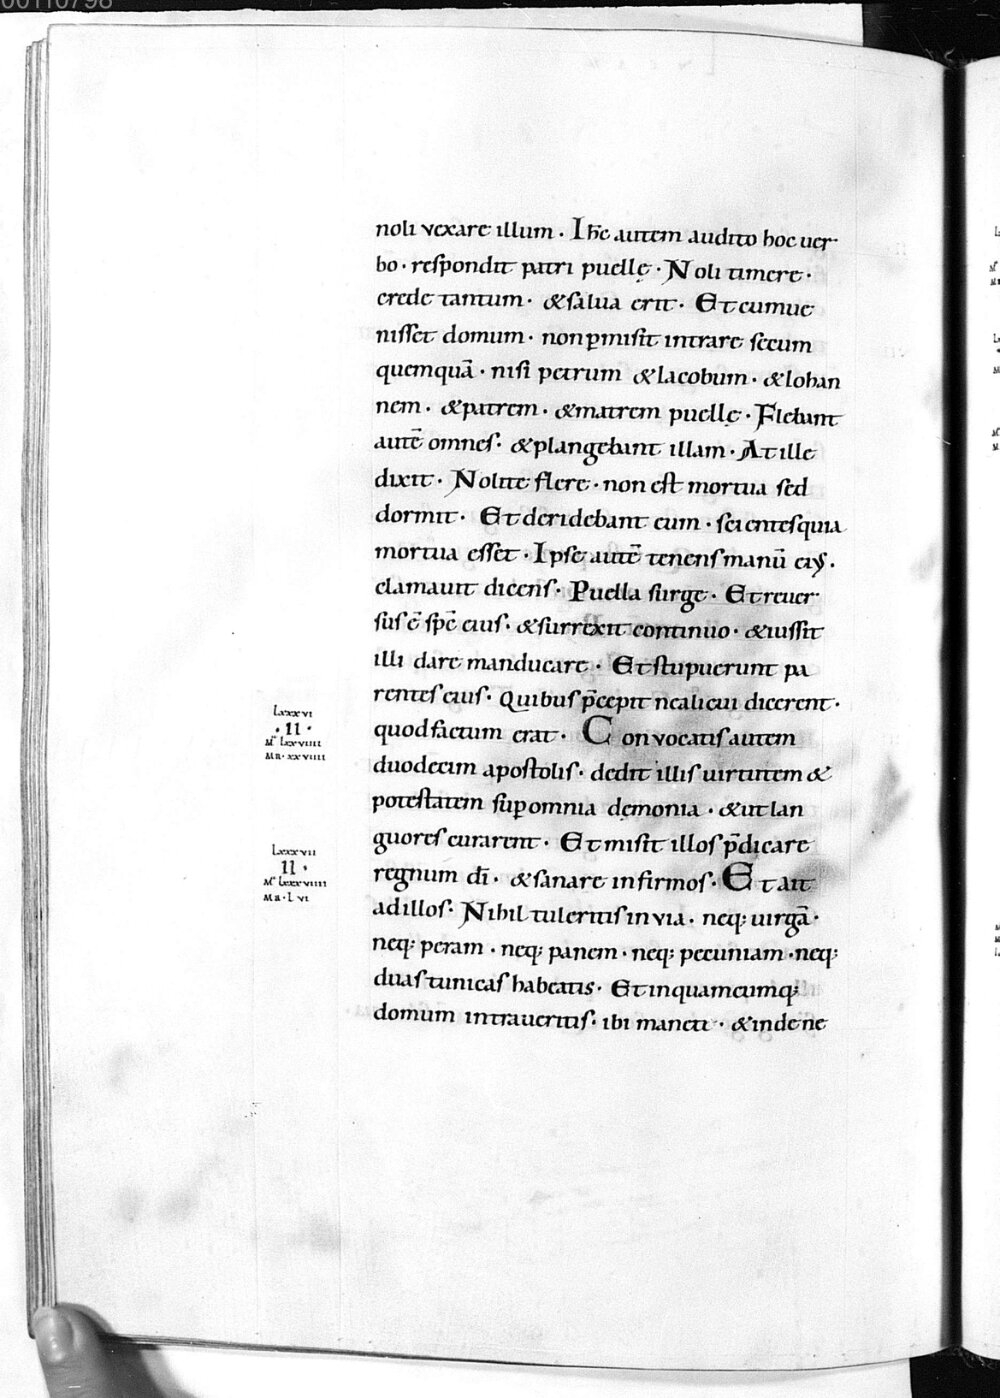 00110798
noli vexare illum · Ihc̄ autem audito hoc uer
bo · respondit patri puellę · Noli timere ·
crede tantum · & salua erit · Et cum ue
nisset domum · non ꝑmisit intrare secum
quemquā · nisi petrum & Iacobum · & Iohan
nem · & patrem · & matrem puellę · Flebant
autē omnes · & plangebant illam · At ille
dixit · Nolite flere · non est mortua sed
dormit · Et deridebant eum · scientes quia
mortua esset · Ipse autē tenens manū eiꝰ ·
clamauit dicens · Puella surge · Et reuer
sus ē spc̄ eius · & surrexit continuo · & iussit
illi dare manducare · Et stupuerunt pa
rentes eius · Quibus p̄cepit ne alicui dicerent ·
quod factum erat · Conuocatis autem
duodecim apostolis · dedit illis uirtutem &
potestatem suꝑ omnia dęmonia · & ut lan
guores curarent · Et misit illos p̄dicare
regnum dī · & sanare infirmos · Et ait
ad illos · Nihil tuleritis in uia · neq; uirgā ·
neq; peram · neq; panem · neq; pecuniam · neq;
duas tunicas habeatis · Et in quamcumq;
domum intraueritis · ibi maneti · & inde ne
Lxxxvi
· II ·
Mt Lxxviiii
Mr · xxviiii
Lxxxvii
II ·
Mt Lxxxviiii
Mr · L vi